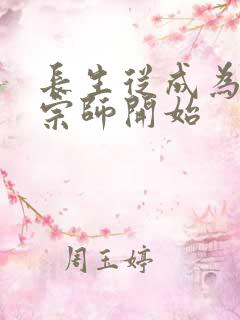 長生從成為
宗師開始
周玉婷